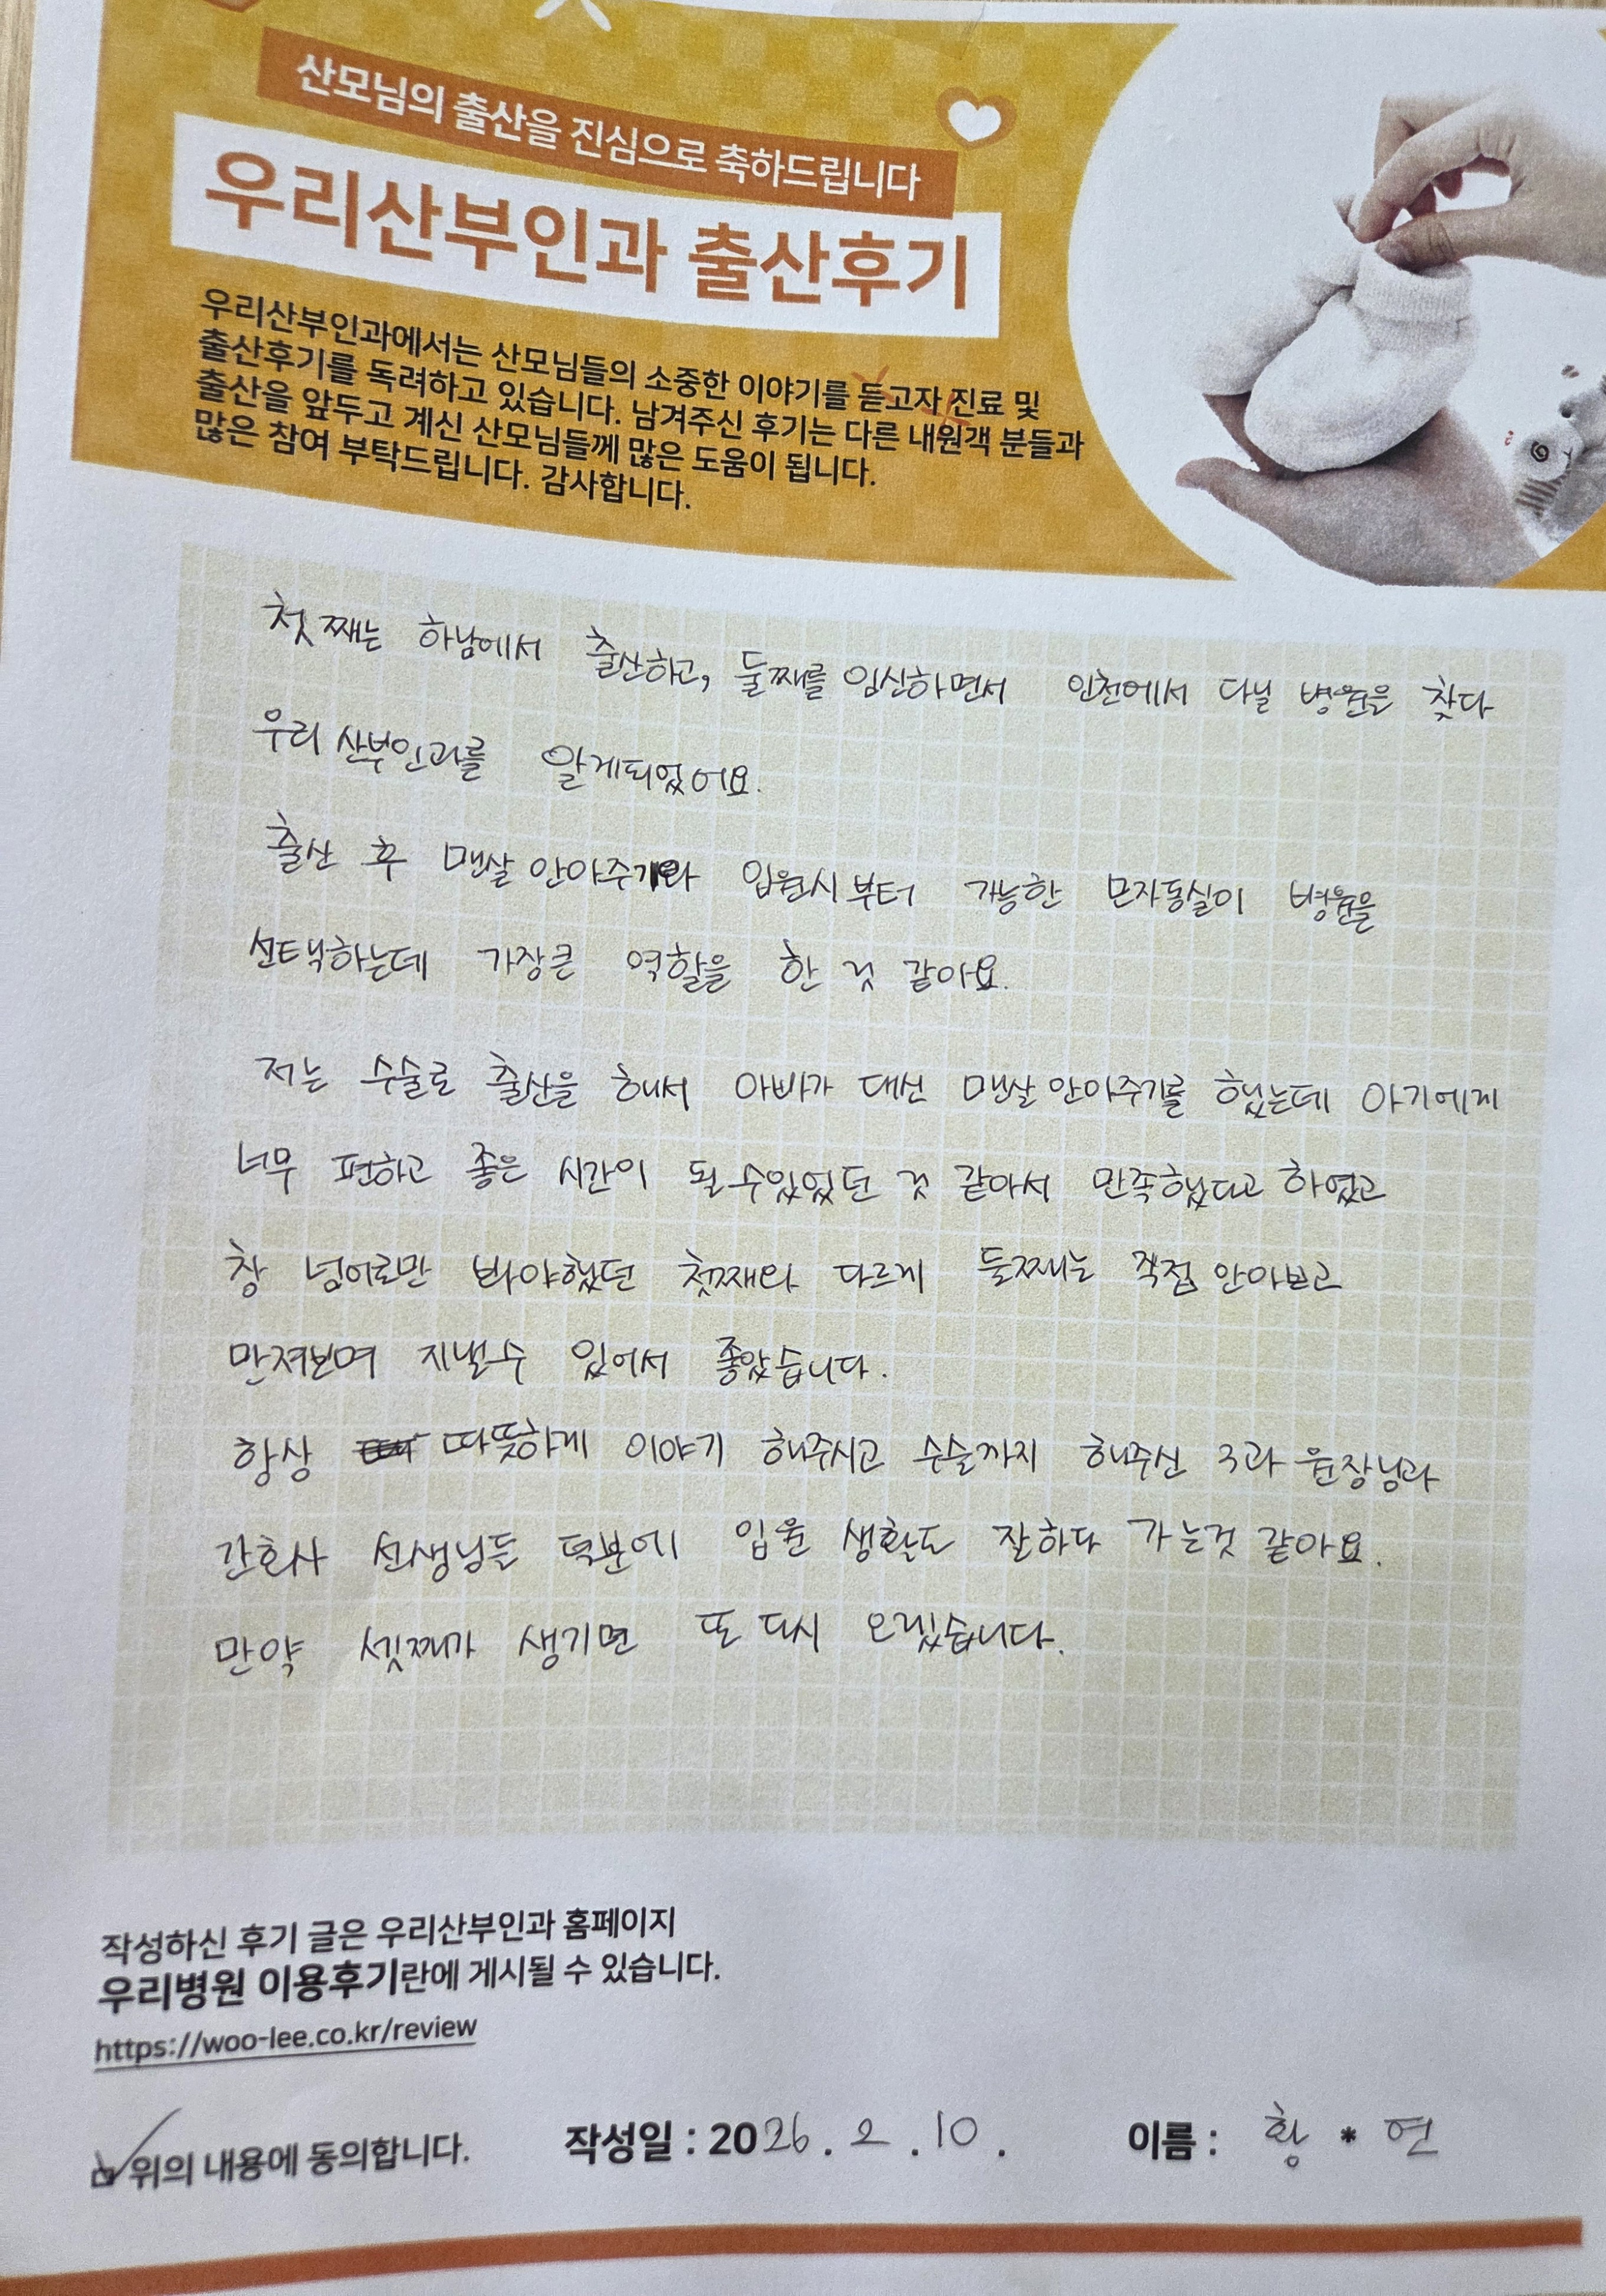 산모님의 출산을 진심으로 축하드립니다
우리산부인과 출산후기
우리산부인과에서는 산모님들의 소중한 이야기를 듣고자 진료 및
출산후기를 독려하고 있습니다. 남겨주신 후기는 다른 내원객 분들과
출산을 앞두고 계신 산모님들께 많은 도움이 됩니다.
많은 참여 부탁드립니다. 감사합니다.
첫째는 하남에서 출산하고, 둘째를 임신하면서 인천에서 다닐 병원을 찾다
우리 산부인과를 알게되었어요.
출산 후 맨살 안아주기와 입원시부터 가능한 모자동실이 병원을
선택하는데 가장큰 역할을 한 것 같아요.
저는 수술로 출산을 해서 아빠가 대신 맨살 안아주기를 했는데 아기에게
너무 편하고 좋은 시간이 될수있었던 것 같아서 만족했다고 하였고
창 넘어로만 봐야했던 첫째와 다르게 둘째는 직접 안아보고
만져보며 지낼수 있어서 좋았습니다.
항상 따뜻하게 이야기 해주시고 수술까지 해주신 3과 원장님과
간호사 선생님들 덕분에 입원 생활도 잘하다 가는것 같아요.
만약 셋째가 생기면 또 다시 오겠습니다.
작성하신 후기 글은 우리산부인과 홈페이지
우리병원 이용후기란에 게시될 수 있습니다.
https://woo-lee.co.kr/review
위의 내용에 동의합니다. 작성일 : 2026 . 2 . 10 . 이름 : 황 * 연